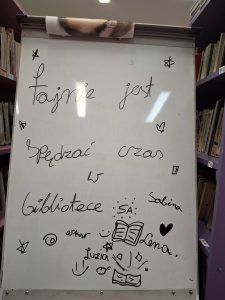 fajnie jest
spędzać czas
w
bibliotece
Sabina
Lena.
Luzia